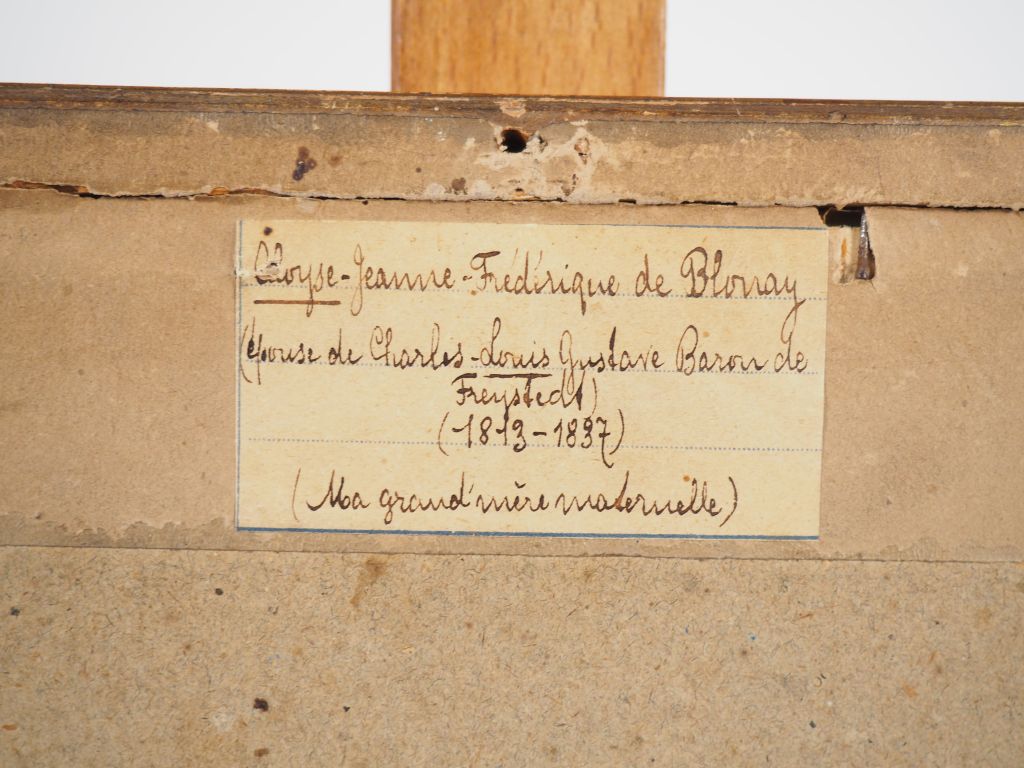 Cloyse-Jeanne-Frédérique de Blonay
(épouse de Charles-Louis Gustave Baron de
Freystedt)
(1813-1837)
(Ma grand'mère maternelle)